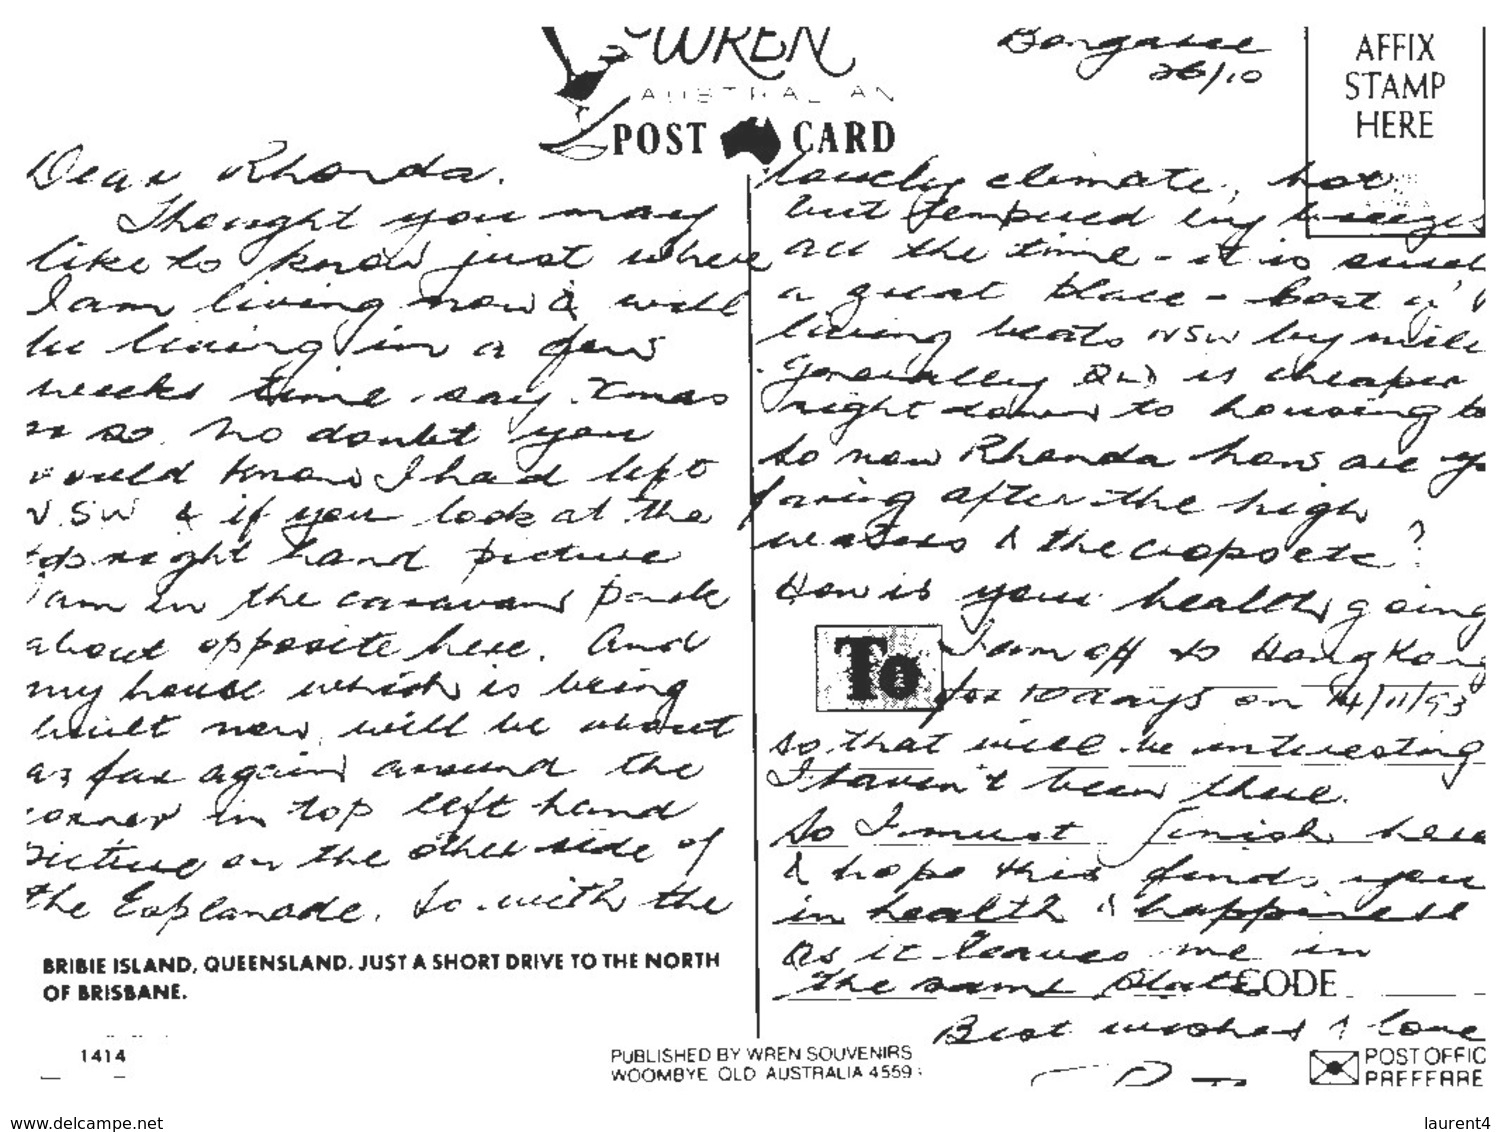 WREN
AUSTRALIAN
POST CARD
Bongaree
26/10
AFFIX
STAMP
HERE
Dear Rhonda.
Thought you may
like to know just where
I am living now & will
be living in a few
weeks time say Xmas
or so. No doubt you
would know I had left
N.SW & if you look at the
top right hand picture
I am in the caravan park
about opposite here. And
my house which is being
built now, will be about
as far again around the
corner in top left hand
picture on the other side of
the Esplanade. So with the
lovely climate, hot
but tempered by breezes
all the time - it is such
a great place - best
living beats NSW by mile
Generally QLD is cheaper
right down to housing to
So now Rhonda how are yo
faring after the high
waters & the crops etc?
How is your health going
To
I am off to Hong Kong
for 10 days on 14/11/93
so that will be interesting
I haven't been there.
So I must finish here
& hope this finds you
in health & happiness
as it leaves me in
the same State
CODE
Best wishes & love
BRIBIE ISLAND, QUEENSLAND. JUST A SHORT DRIVE TO THE NORTH
OF BRISBANE.
1414
PUBLISHED BY WREN SOUVENIRS
WOOMBYE QLD AUSTRALIA 4559
POST OFFIC
PREFERRE
www.delcampe.net
laurent4